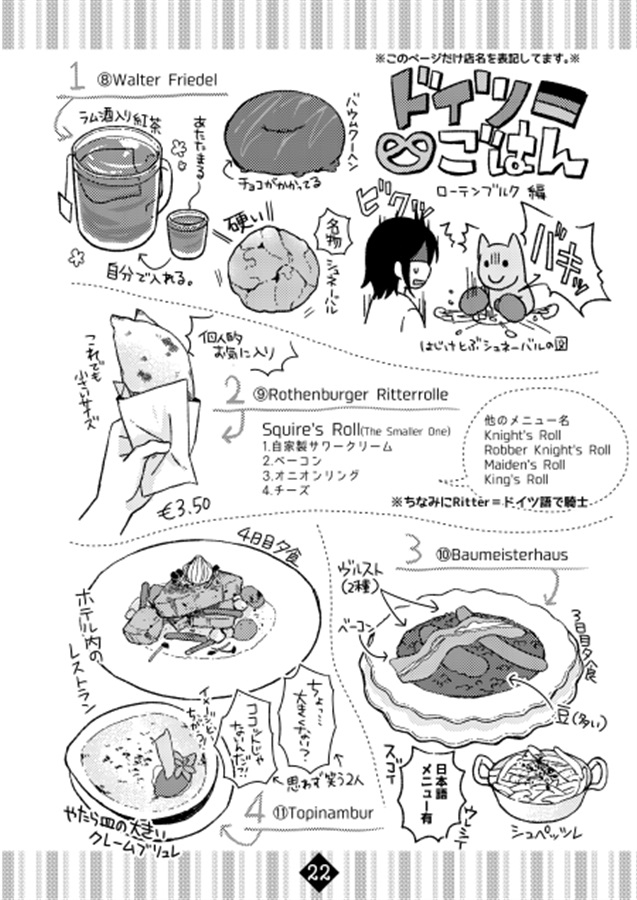 ※このページだけ店名を表記してます。※
ドイツ
ごはん
ローテンブルク 編
1 ⑧Walter Friedel
ラム酒入り紅茶
あたたまる
自分で入れる。
バウムクーヘン
チョコがかかってる
硬い
名物
シュネーバル
ビクッ
バキッ
はじけとぶシュネーバルの図
個人的
お気に入り
これでも
小さいサイズ
€3.50
2 ⑨Rothenburger Ritterrolle
Squire's Roll(The Smaller One)
1.自家製サワークリーム
2.ベーコン
3.オニオンリング
4.チーズ
他のメニュー名
Knight's Roll
Robber Knight's Roll
Maiden's Roll
King's Roll
※ちなみにRitter＝ドイツ語で騎士
3 ⑩Baumeisterhaus
ヴルスト
(2種)
ベーコン
3日目夕食
豆(多い)
日本語
メニュー有
スゴイ
シュペッツレ
4日目夕食
ホテル内の
レストラン
ちょっ…
大きくない?
ココットじゃ
ないんだ?!
イメージと
ちがう?!
思わず笑う2人
4 ⑪Topinambur
やたら皿の大きい
クレームブリュレ
22